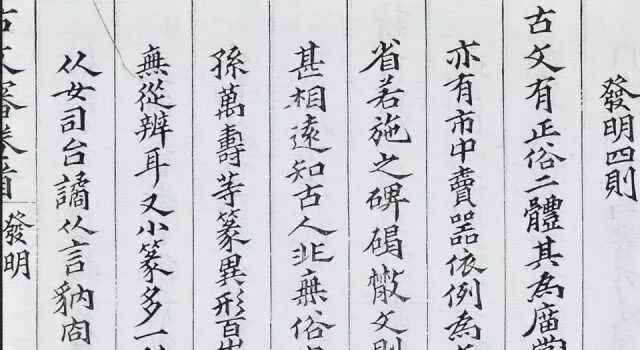 發明四則
古文有正俗二體其為廣
亦有市中賣器依例為
省若施之碑碣檄文則
甚相遠知古人非無俗
孫萬壽等篆異形百出
無從辨耳又小篆多一
仫女司台譎仫言貈㕯
古文審卷首
發明